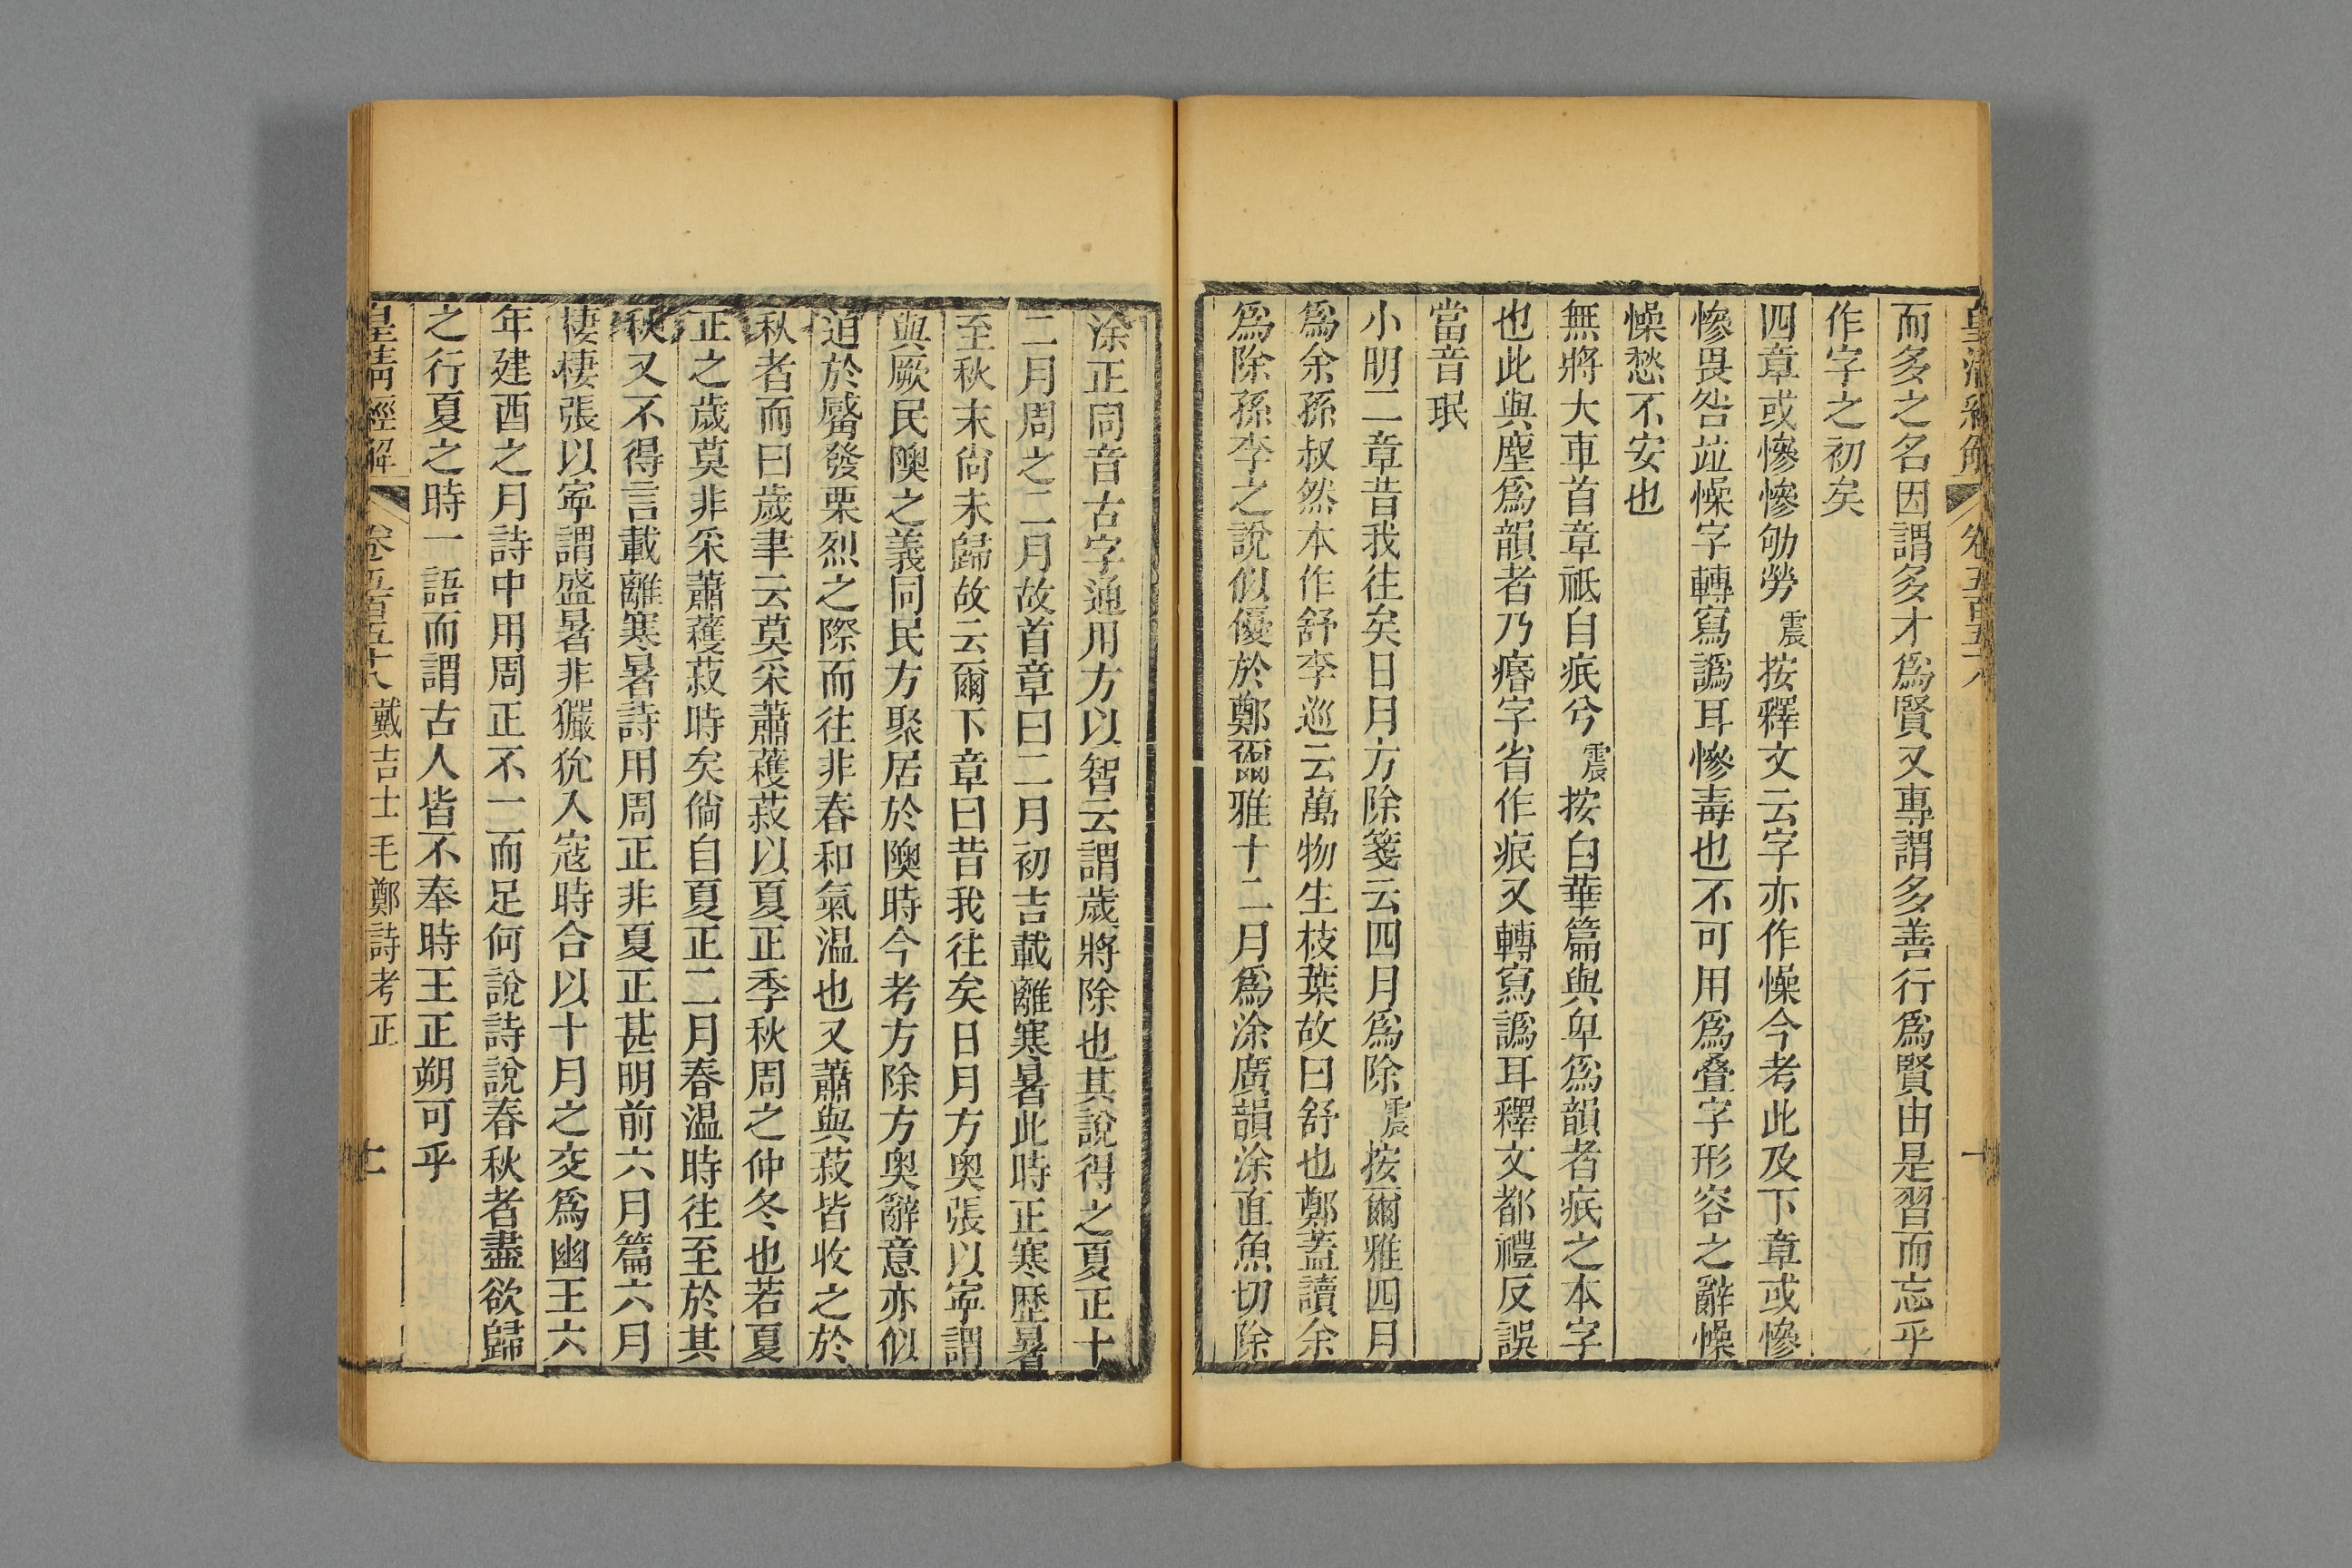 皇清經解 卷五百五十八
而多之名因謂多才爲賢又專謂多善行爲賢由是習而忘乎
作字之初矣
四章或慘慘劬勞震按釋文云字亦作懆今考此及下章或慘
慘畏咎竝懆字轉寫譌耳慘毒也不可用爲叠字形容之辭懆
懆愁不安也
無將大車首章祗自疷兮震按白華篇與卑爲韻者疷之本字
也此與塵爲韻者乃痻字省作痻又轉寫譌耳釋文都禮反誤
當音珉
小明二章昔我往矣日月方除箋云四月爲除震按爾雅四月
爲余孫叔然本作舒李巡云萬物生枝葉故曰舒也鄭蓋讀余
爲除孫李之說似優於鄭爾雅十二月爲涂廣韻涂直魚切除
涂正同音古字通用方以智云謂歲將除也其說得之夏正十
二月周之二月故首章曰二月初吉載離寒暑此時正寒歷暑
至秋末尙未歸故云爾下章曰昔我往矣日月方奧張以寧謂
與厥民隩之義同民方聚居於隩時今考方除方奧辭意亦似
迫於觱發栗烈之際而往非春和氣温也又蕭與菽皆收之於
秋者而曰歲聿云莫采蕭穫菽以夏正季秋周之仲冬也若夏
正之歲莫非采蕭穫菽時矣倘自夏正二月春温時往至於其
秋又不得言載離寒暑詩用周正非夏正甚明前六月篇六月
棲棲張以寧謂盛暑非玁狁入寇時合以十月之交爲幽王六
年建酉之月詩中用周正不一而足何說詩說春秋者盡欲歸
之行夏之時一語而謂古人皆不奉時王正朔可乎
皇清經解 卷五百五十八 戴吉士毛鄭詩考正